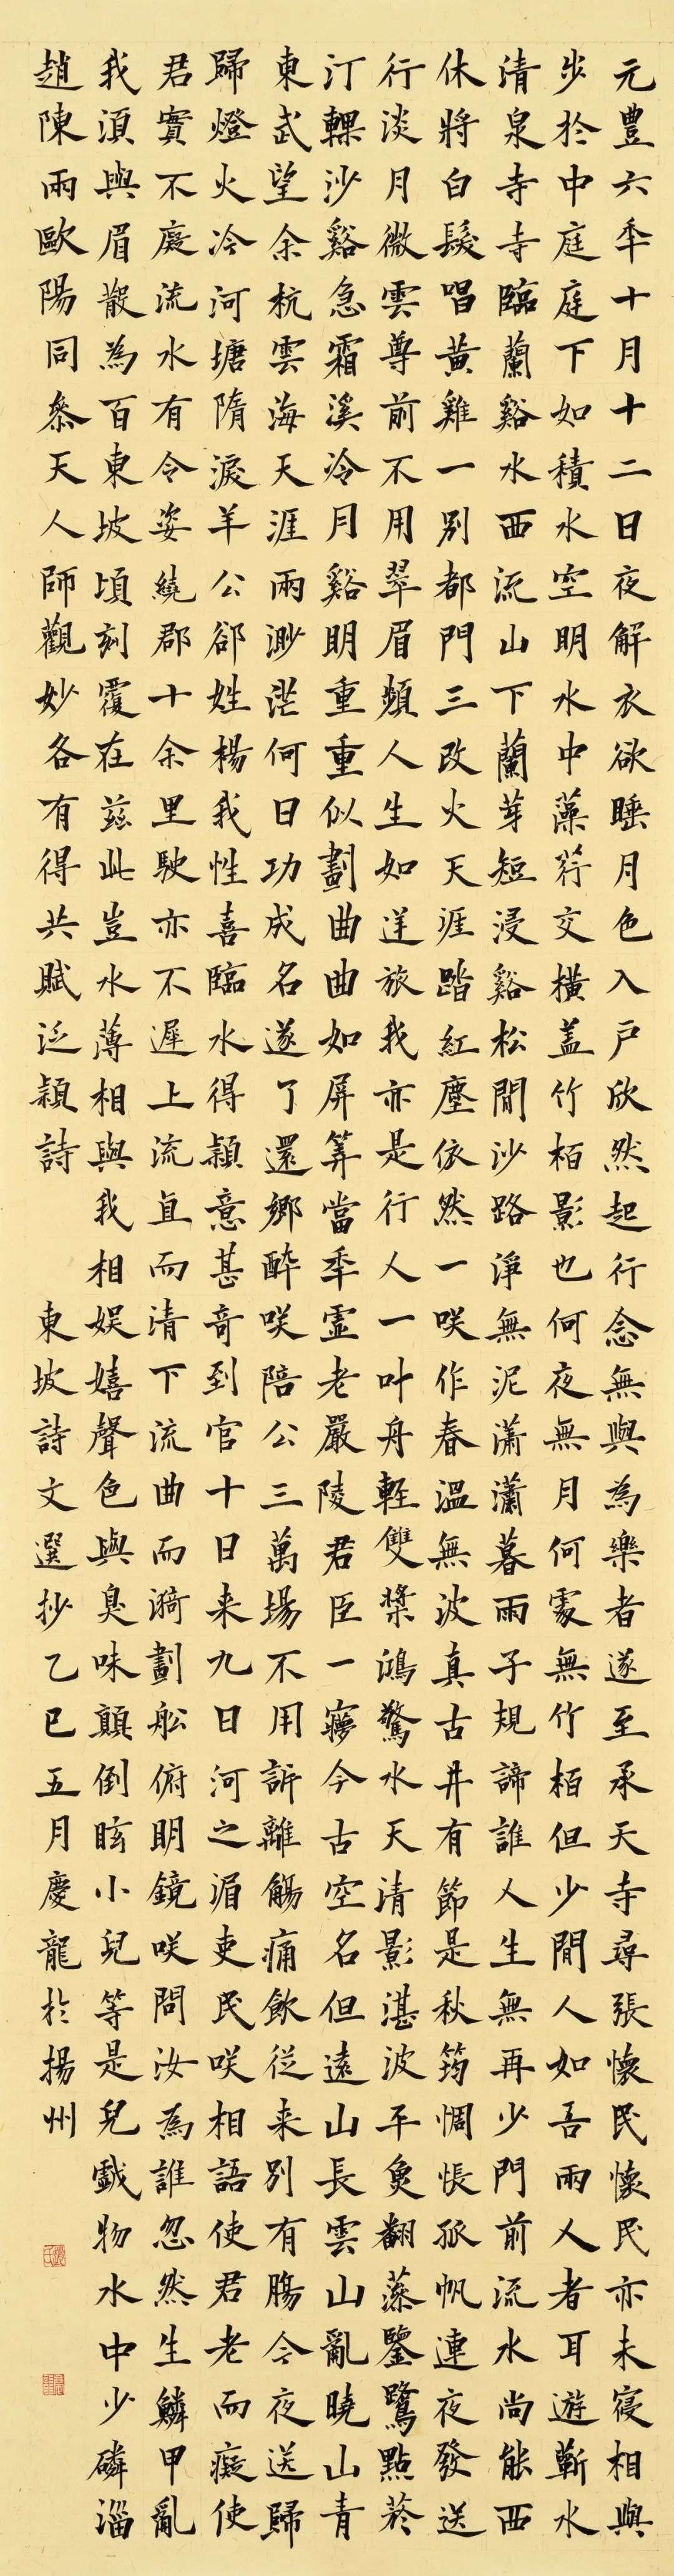 元豊六年十月十二日夜解衣欲睡月色入戶欣然起行念無與為樂者遂至承天寺尋張懷民懷民亦未寢相與
步於中庭庭下如積水空明水中藻荇交橫蓋竹栢影也何夜無月何處無竹栢但少閒人如吾兩人者耳遊蘄水
清泉寺寺臨蘭谿水西流山下蘭芽短浸谿松間沙路淨無泥瀟瀟暮雨子規諦誰人生無再少門前流水尚能西
休將白髮唱黃雞一別都門三改火天涯踏紅塵依然一咲作春溫無波真古井有節是秋筠惆悵孤帆連夜發送
行淡月微雲尊前不用翠眉頻人生如逆旅我亦是行人一叶舟輕雙槳鴻驚水天清影湛波平魚翻藻鑒鷺點菸
汀輠沙谿急霜溪冷月谿明重重似劃曲曲如屏筭當年霊老嚴陵君臣一夢今古空名但遠山長雲山亂曉山青
東武望余杭雲海天涯兩渺茫何日功成名遂了還鄉醉咲陪公三萬場不用訴離觴痛飲從来別有腸今夜送歸
歸燈火冷河塘隋淚羊公郤姓楊我性喜臨水得潁意甚奇到官十日来九日河之湄吏民咲相語使君老而癡使
君實不癡流水有令姿繞郡十余里駛亦不遲上流直而清下流曲而漪劃船俯明鏡咲問汝為誰忽然生鱗甲亂
我須與眉散為百東坡頃刻覆在茲此豈水薄相與我相娛嬉聲色與臭味顛倒眩小兒等是兒戲物水中少磷淄
趙陳兩歐陽同參天人師觀妙各有得共賦泛潁詩 東坡詩文選抄乙巳五月慶龍於揚州